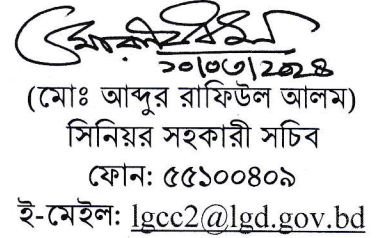 ১০/০৩/২০২৪
(মোঃ আব্দুর রাফিউল আলম)
সিনিয়র সহকারী সচিব
ফোন: ৫৫১০০৪০৯
ই-মেইল: lgcc2@lgd.gov.bd